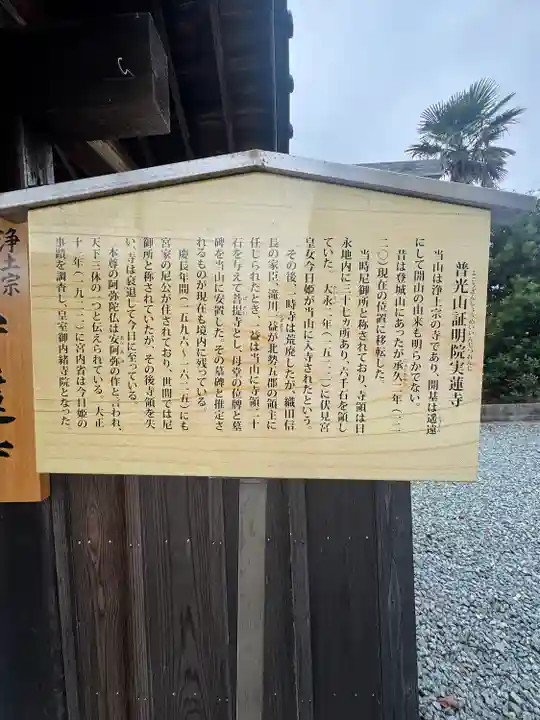 普光山証明院実蓮寺
当山は浄土宗の寺であり、開基は遥遠
にして開山の由来も明らかでない。
昔は登城山にあったが承久二年（一二
二〇）現在の位置に移転した。
当時尼御所と称されており、寺領は日
永地内に三十七ヵ所あり、六千石を領し
ていた。大永二年（一五二二）に伏見宮
皇女今日姫が当山に入寺されたという。
その後、一時寺は荒廃したが、織田信
長の家臣、滝川一益が北勢五郡の領主に
任じられたとき、一益は当山に寺領二十
石を与えて菩提寺とし、母堂の位牌と墓
碑を当山に安置した。その墓碑と推定さ
れるものが現在も境内に残っている。
慶長年間（一五九六〜一六一五）にも
宮家の尼公が住されており、世間では尼
御所と称されていたが、その後寺領を失
い、寺は衰退して今日に至っている。
本尊の阿弥陀仏は安阿弥の作と言われ、
天下三体の一つと伝えられている。大正
十一年（一九二二）に宮内省は今日姫の
事蹟を調査し、皇室御内緒寺院となった。
浄土宗